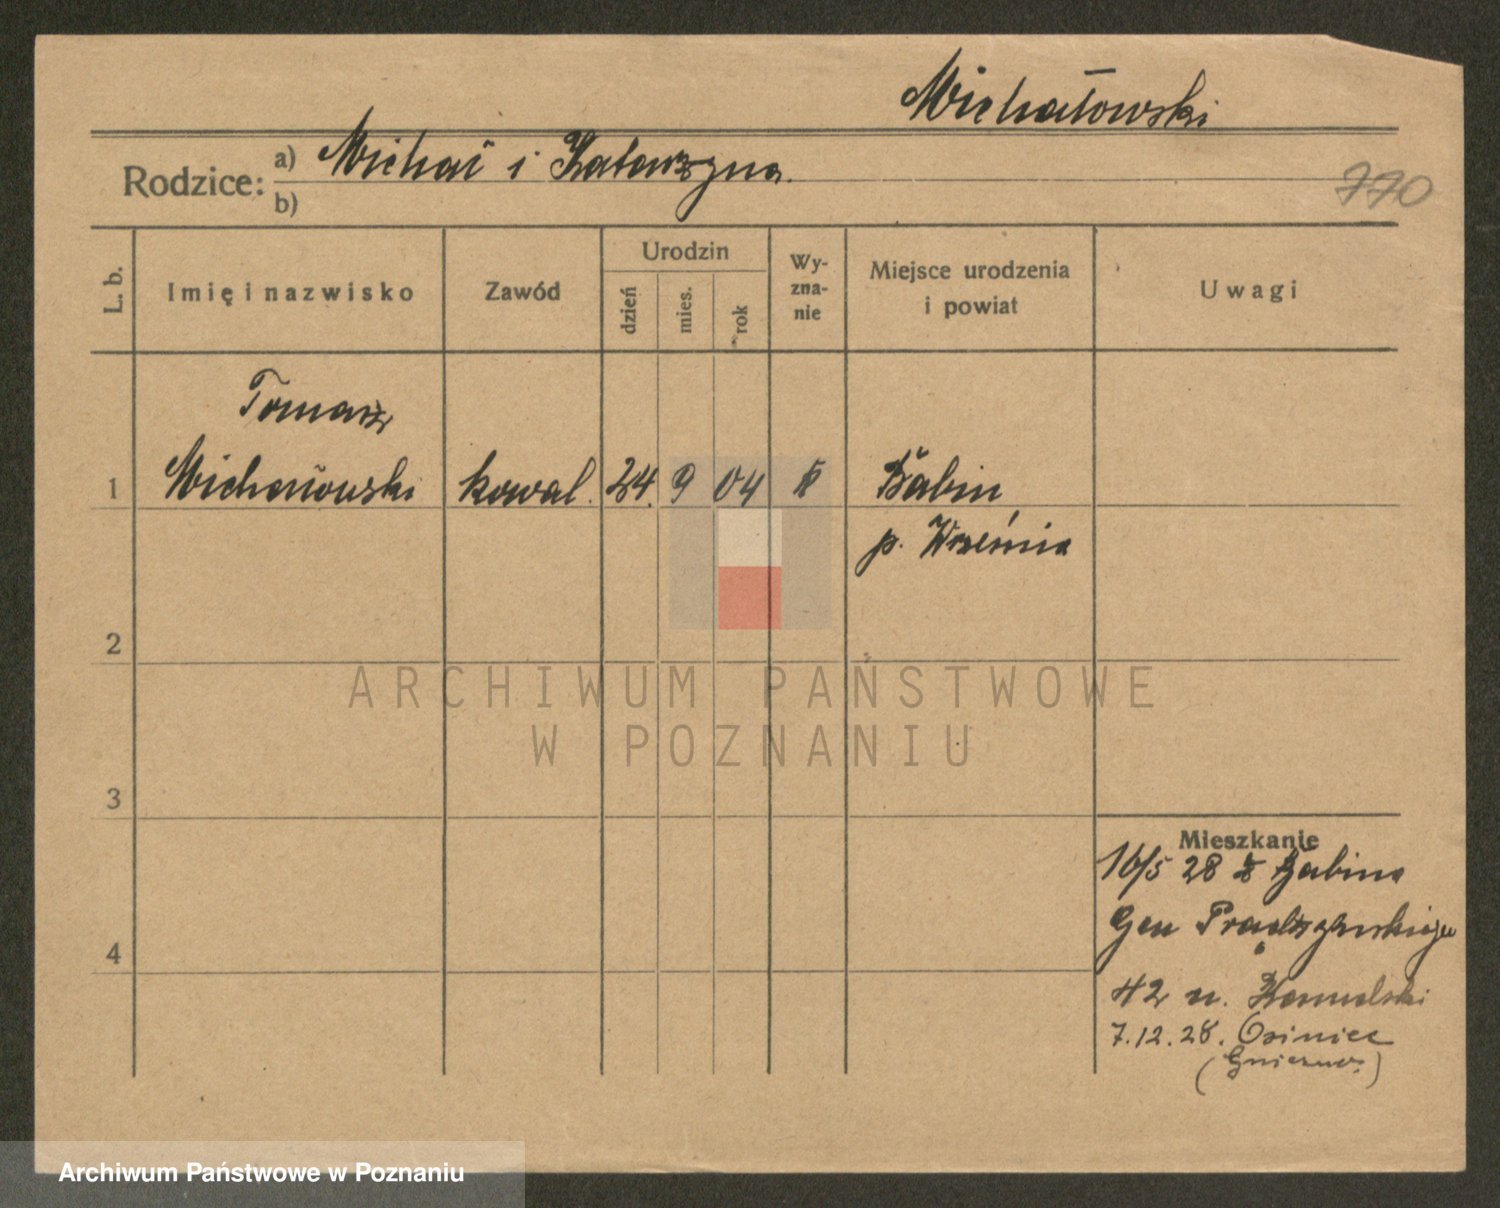 Michałowski
Rodzice: a) Michał i Katarzyna.
b)
770
L. b.
Imię i nazwisko
Zawód
Urodzin
dzień
mies.
rok
Wy-
zna-
nie
Miejsce urodzenia
i powiat
Uwagi
Tomasz
1 Michałowski kowal. 24. 9 04 k Babin
p. Września
2
3
4
Mieszkanie
16/5 28 z Babina
Gen Prądzyńskiego
42 u.
7.12.28. Osiniec
(Gniezno.)
ARCHIWUM PAŃSTWOWE
W POZNANIU
Archiwum Państwowe w Poznaniu